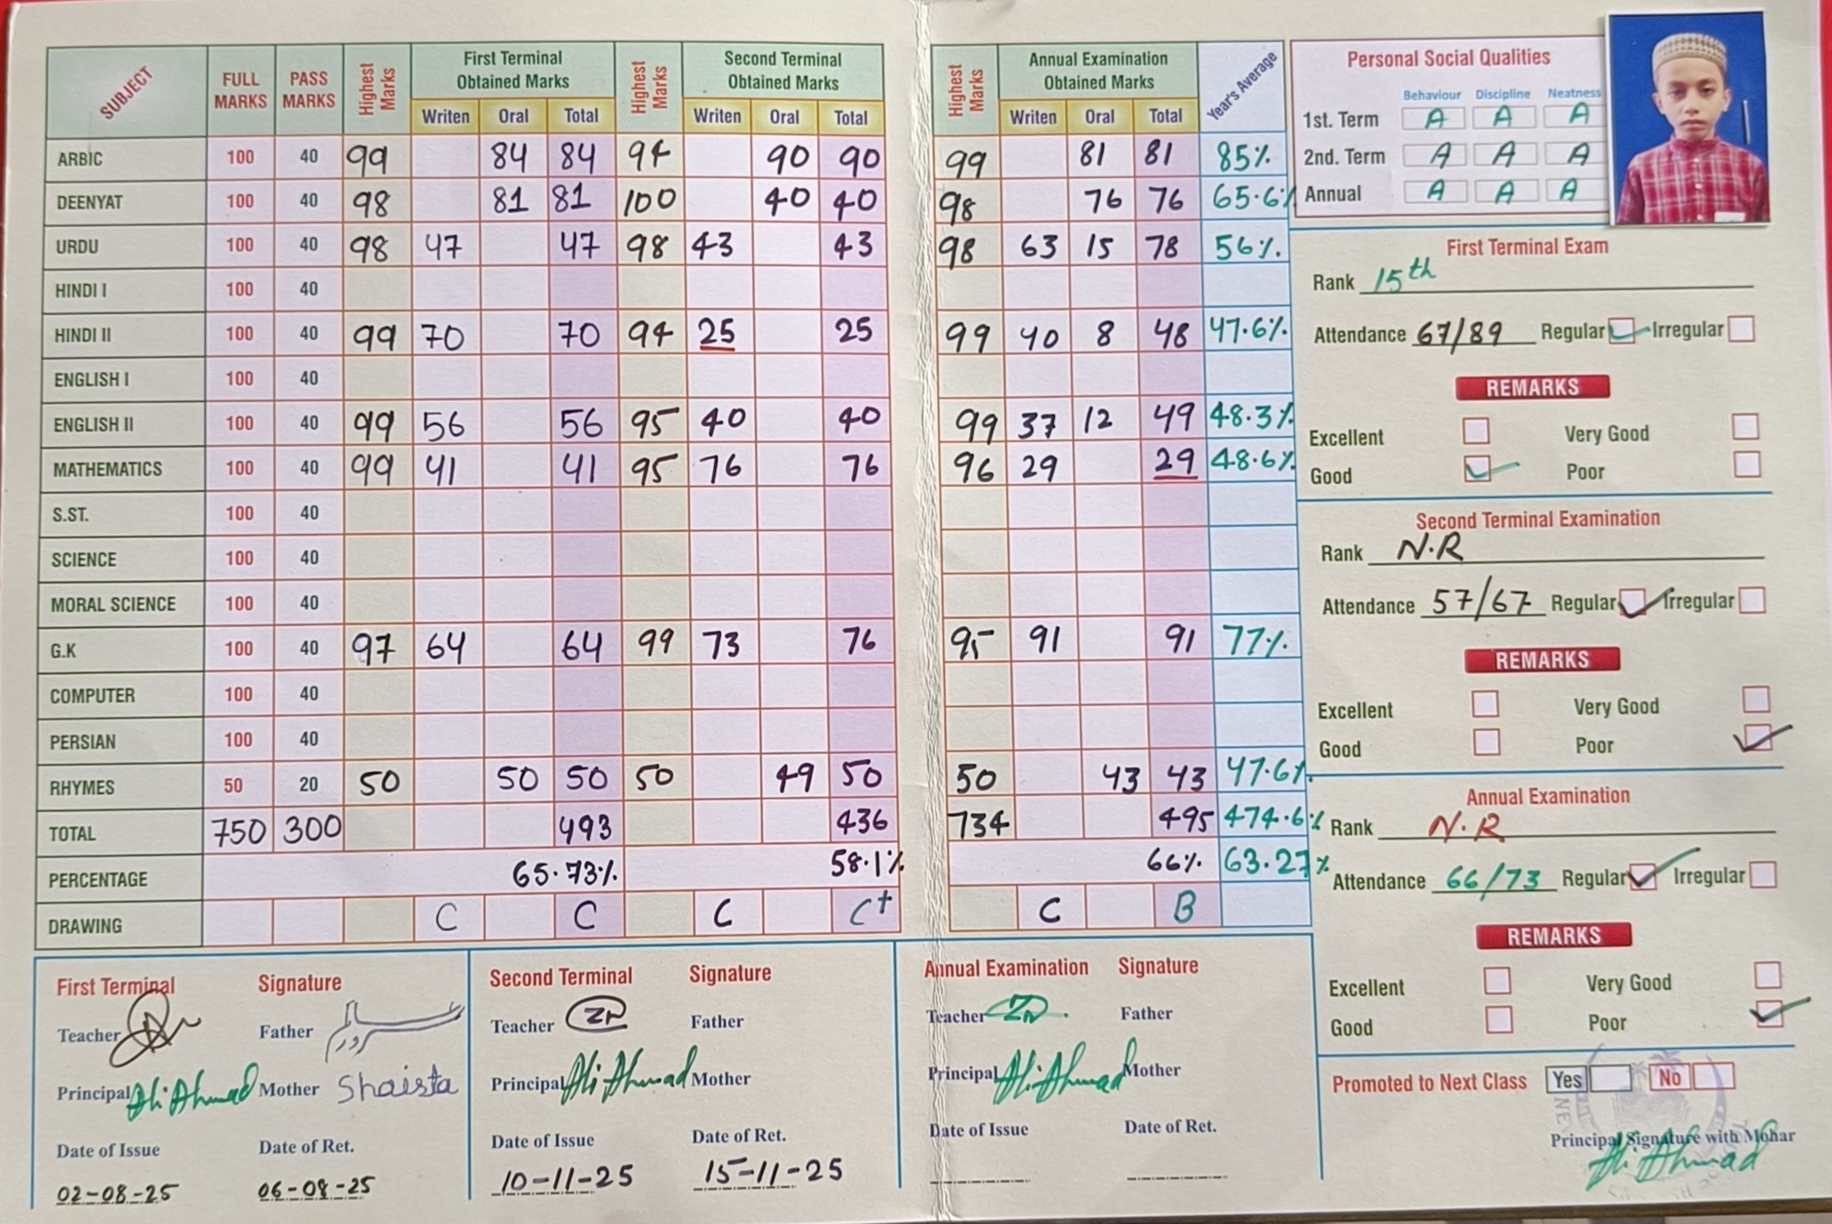 SUBJECT FULL MARKS PASS MARKS Highest Marks First Terminal Obtained Marks Writen Oral Total Highest Marks Second Terminal Obtained Marks Writen Oral Total Highest Marks Annual Examination Obtained Marks Writen Oral Total Year's Average
ARBIC 100 40 99 84 84 94 90 90 99 81 81 85%
DEENYAT 100 40 98 81 81 100 40 40 98 76 76 65.6%
URDU 100 40 98 47 47 98 43 43 98 63 15 78 56%.
HINDI I 100 40
HINDI II 100 40 99 70 70 94 25 25 99 40 8 48 47.6%
ENGLISH I 100 40
ENGLISH II 100 40 99 56 56 95 40 40 99 37 12 49 48.3%
MATHEMATICS 100 40 99 41 41 95 76 76 96 29 29 48.6%
S.ST. 100 40
SCIENCE 100 40
MORAL SCIENCE 100 40
G.K 100 40 97 64 64 99 73 76 95 91 91 77%
COMPUTER 100 40
PERSIAN 100 40
RHYMES 50 20 50 50 50 50 49 50 50 43 43 47.6%
TOTAL 750 300 493 436 734 495 474.6%
PERCENTAGE 65.73% 58.1% 66% 63.27%
DRAWING C C C C+ C B
Personal Social Qualities
Behaviour Discipline Neatness
1st. Term A A A
2nd. Term A A A
Annual A A A
First Terminal Exam
Rank 15th
Attendance 67/89 Regular Irregular
REMARKS
Excellent Very Good
Good Poor
Second Terminal Examination
Rank N.R
Attendance 57/67 Regular Irregular
REMARKS
Excellent Very Good
Good Poor
Annual Examination
Rank N.R
Attendance 66/73 Regular Irregular
REMARKS
Excellent Very Good
Good Poor
Promoted to Next Class Yes No
Principal Signature with Mohar
Ali Ahmad
First Terminal Signature
Teacher Father
Principal Ali Ahmad Mother Shaista
Date of Issue Date of Ret.
02-08-25 06-08-25
Second Terminal Signature
Teacher ZN Father
Principal Ali Ahmad Mother
Date of Issue Date of Ret.
10-11-25 15-11-25
Annual Examination Signature
Teacher ZN Father
Principal Ali Ahmad Mother
Date of Issue Date of Ret.